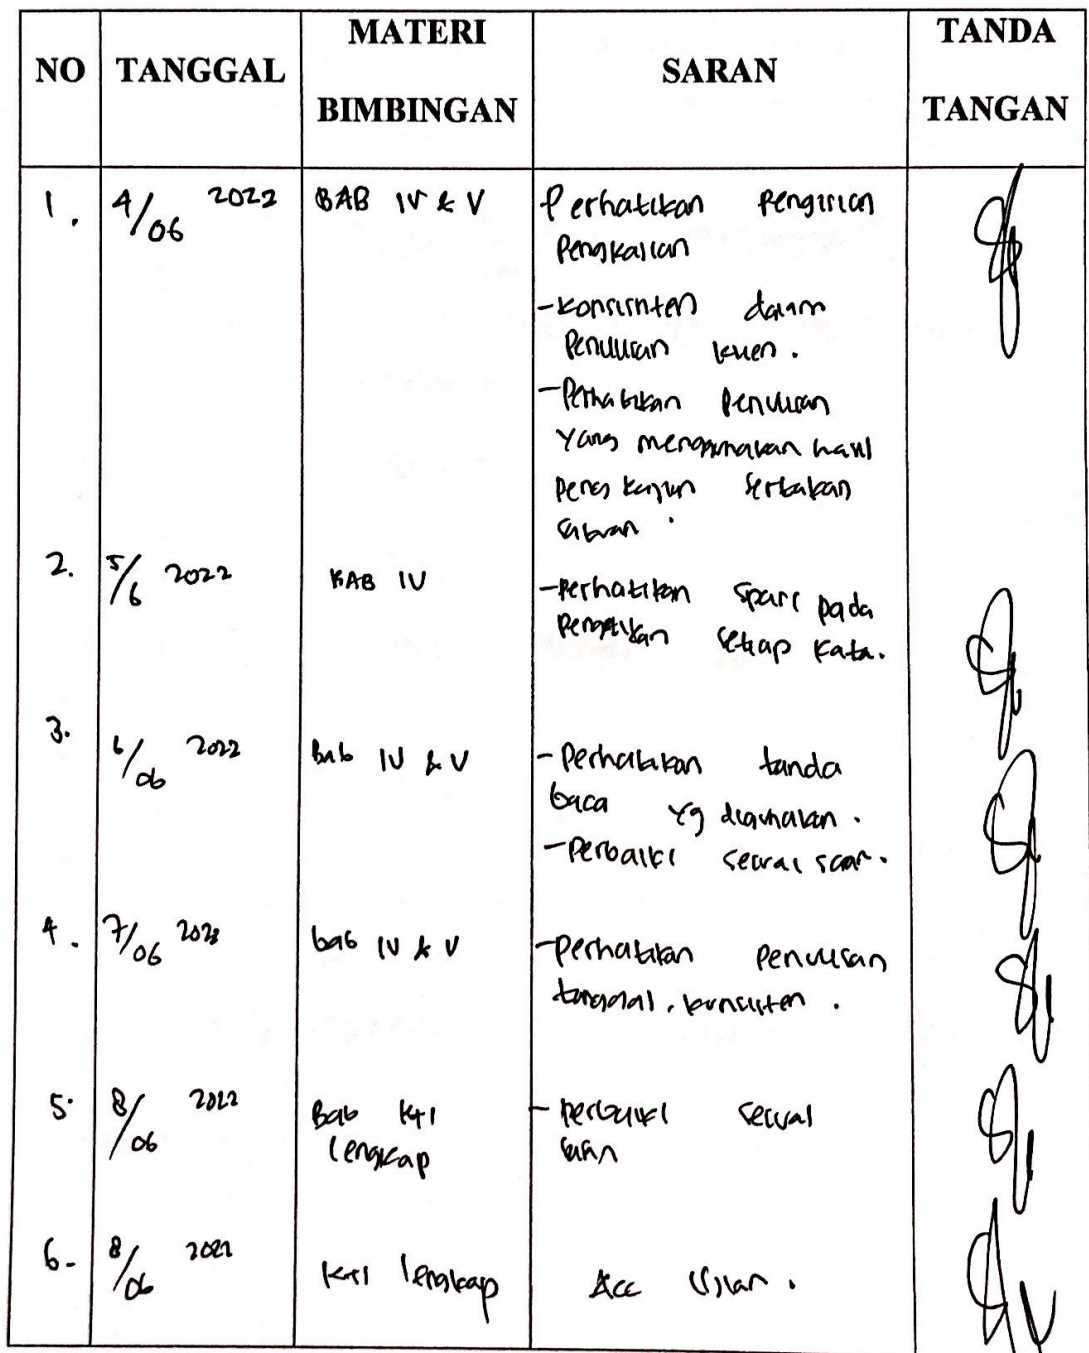 NO TANGGAL MATERI BIMBINGAN SARAN TANDA TANGAN
1. 4/06 2022 BAB IV & V Perhatikan Pengisian
Pengkajian
- Konsisten dalam
Penulisan klien.
- Perhatikan Penulisan
Yang menggunakan hasil
Pengkajian sertakan
satuan.
2. 5/6 2022 BAB IV - Perhatikan spasi pada
Pengetikan setiap kata.
3. 6/06 2022 Bab IV & V - Perhatikan tanda
baca yg digunakan.
- Perbaiki sesuai saran.
4. 7/06 2022 bab IV & V - Perhatikan Penulisan
tanggal, konsisten.
5. 8/06 2022 Bab KTI - Perbaiki sesuai
lengkap saran
6- 8/06 2022 KTI lengkap Acc Ujian.